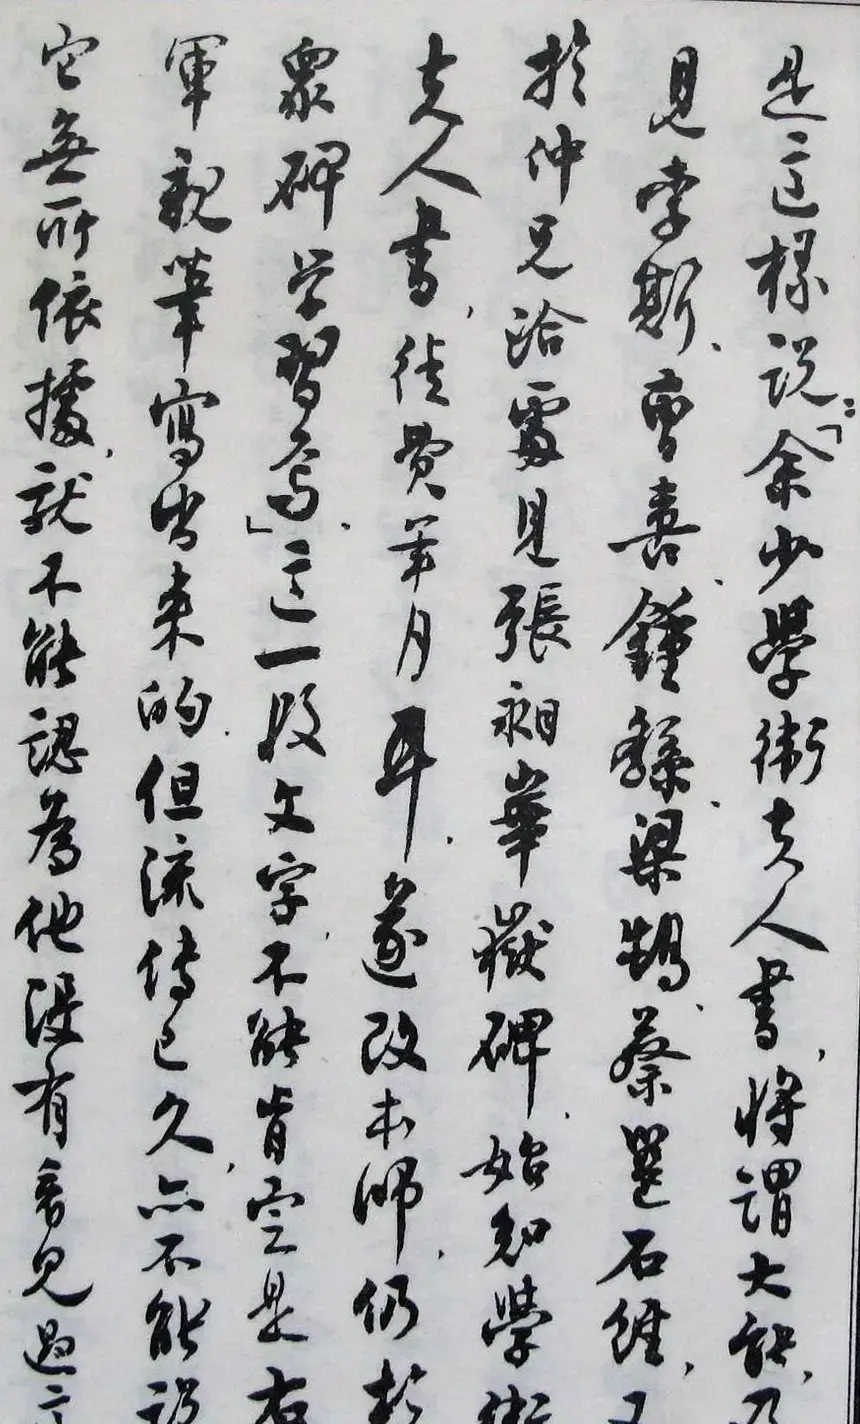 是這樣說:「余少學衛夫人書,將謂大能,乃
見李斯、曹喜、鍾繇、梁鵠、蔡邕石經,又
於仲兄洽處見張昶華嶽碑,始知學衛
夫人書,徒費年月耳。遂改本師,仍於
衆碑学習焉」。這一段文字,不能肯定是右
軍親筆寫出来的。但流傳已久,亦不能說
它無所依據,就不能認為他沒有看見過這